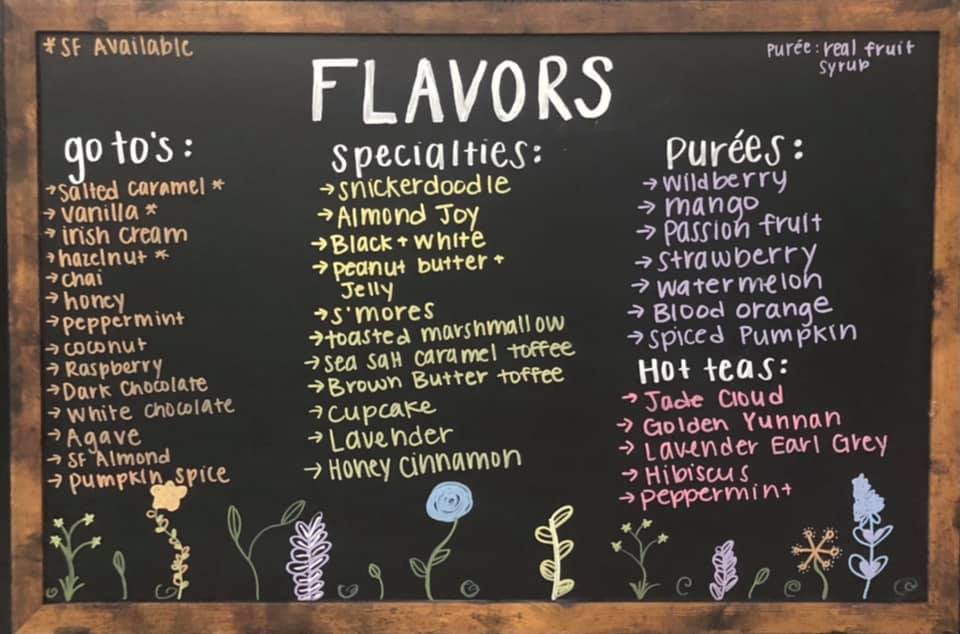 *SF Available
Purée: real fruit
syrup
FLAVORS
go to's:
→Salted caramel *
→vanilla *
→irish cream
→hazelnut *
→chai
→honey
→peppermint
→coconut
→Raspberry
→Dark Chocolate
→White chocolate
→Agave
→SF Almond
→pumpkin spice
specialties:
→snickerdoodle
→Almond Joy
→Black + white
→peanut butter +
Jelly
→s'mores
→toasted marshmallow
→sea salt caramel toffee
→Brown Butter toffee
→cupcake
→Lavender
→Honey cinnamon
purées:
→wildberry
→mango
→passion fruit
→strawberry
→watermelon
→Blood orange
→spiced Pumpkin
Hot teas:
→Jade Cloud
→Golden Yunnan
→Lavender Earl Grey
→Hibiscus
→peppermint